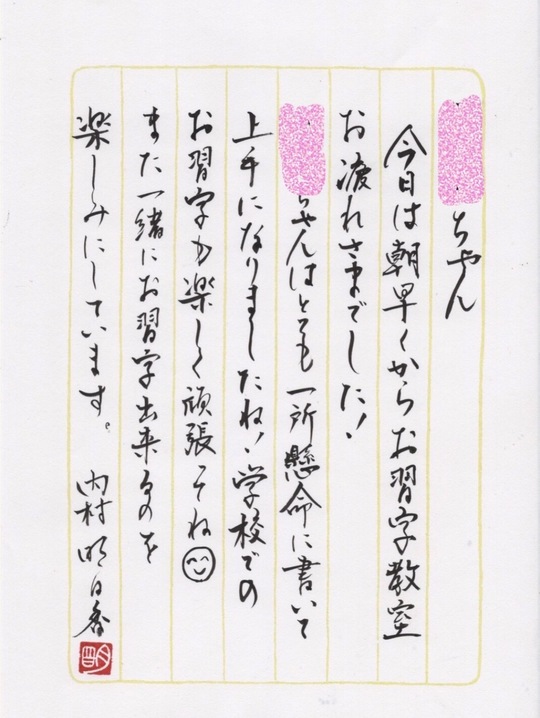 ちゃん
今日は朝早くからお習字教室
お疲れさまでした！
ちゃんはとても一所懸命に書いて
上手になりましたね！学校での
お習字も楽しく頑張ってね
また一緒にお習字出来るのを
楽しみにしています。 内村明日香